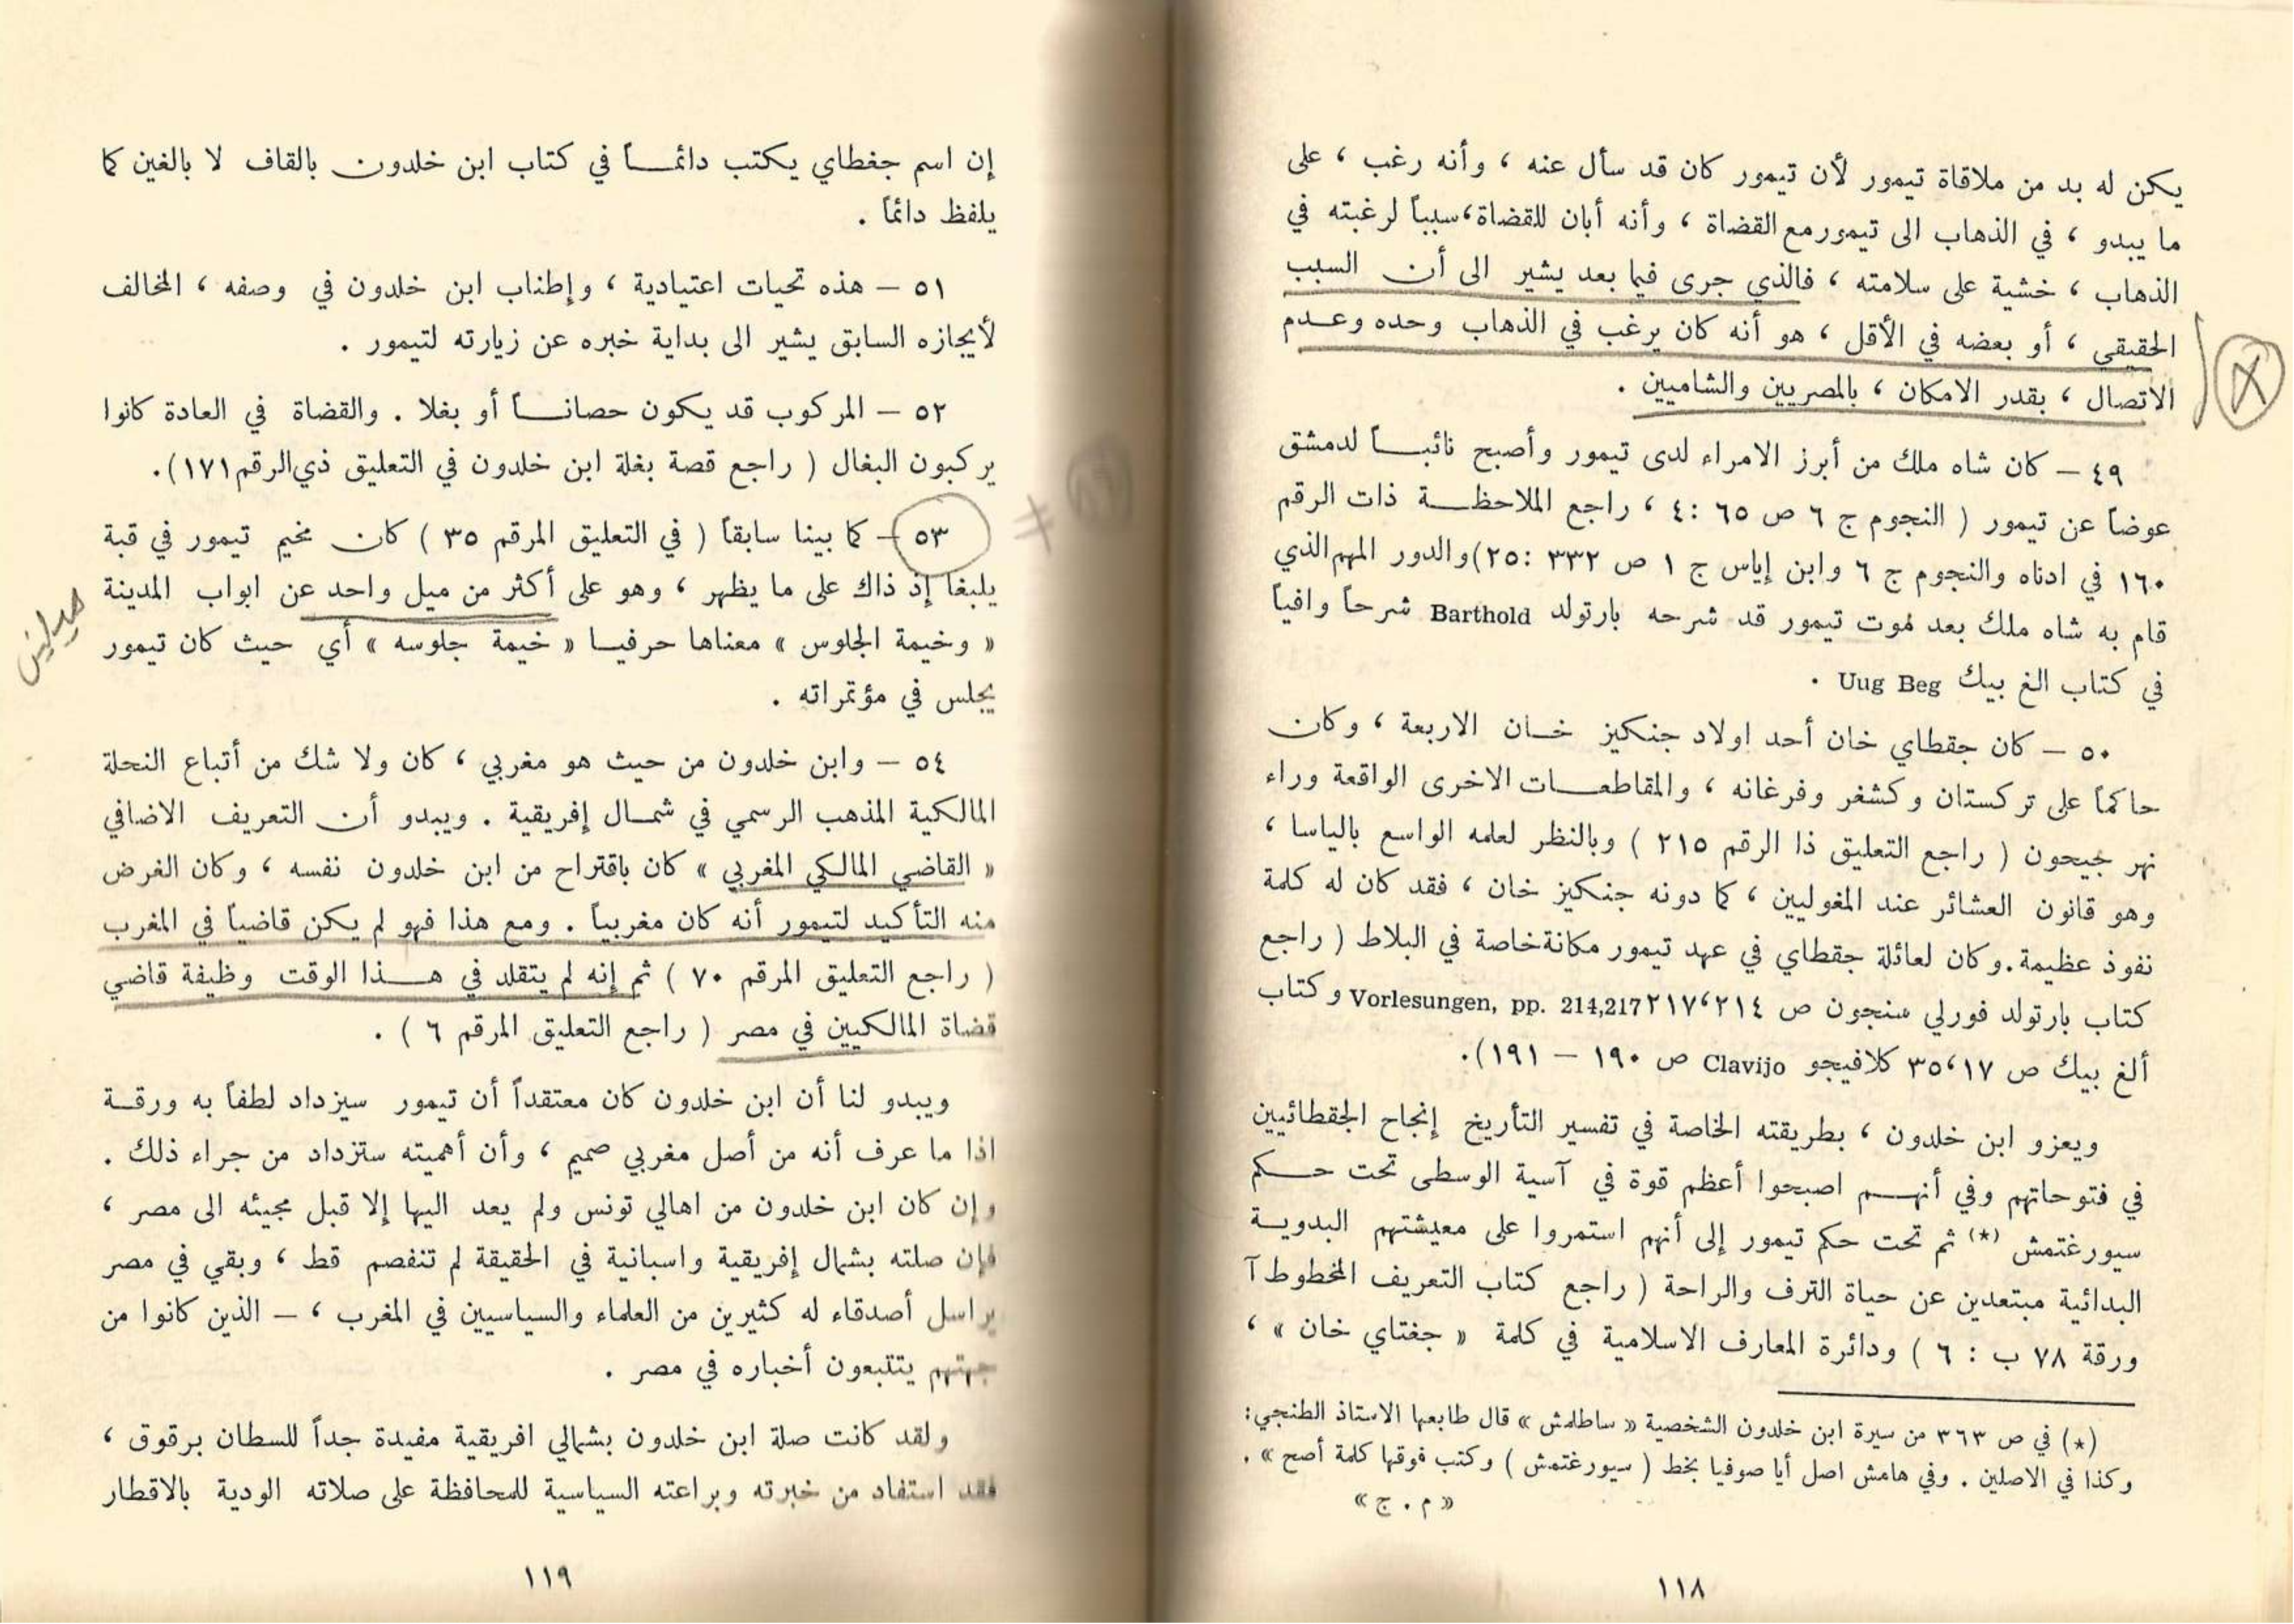 يكن له بد من ملاقاة تيمور لأن تيمور كان قد سأل عنه ، وأنه رغب ، على
ما يبدو ، في الذهاب الى تيمور مع القضاة ، وأنه أبان للقضاة، سبباً لرغبته في
الذهاب ، خشية على سلامته ، فالذي جرى فيما بعد يشير الى أن السبب
الحقيقي ، أو بعضه في الأقل ، هو أنه كان يرغب في الذهاب وحده وعدم
الاتصال ، بقدر الامكان ، بالمصريين والشاميين .
٤٩ – كان شاه ملك من أبرز الامراء لدى تيمور وأصبح نائباً لدمشق
عوضاً عن تيمور ( النجوم ج ٦ ص ٦٥ :٤ ، راجع الملاحظة ذات الرقم
١٦٠ في ادناه والنجوم ج ٦ وابن إياس ج ١ ص ٣٣٢ :٢٥) والدور المهم الذي
قام به شاه ملك بعد موت تيمور قد شرحه بارتولد Barthold شرحاً وافياً
في كتاب الغ بيك Uug Beg .
٥٠ – كان جقطاي خان أحد اولاد جنكيز خان الاربعة ، وكان
حاكماً على تركستان وكشغر وفرغانه ، والمقاطعات الاخرى الواقعة وراء
نهر جيحون ( راجع التعليق ذا الرقم ٢١٥ ) وبالنظر لعلمه الواسع بالياسا ،
وهو قانون العشائر عند المغوليين ، كما دونه جنكيز خان ، فقد كان له كلمة
نفوذ عظيمة . وكان لعائلة جقطاي في عهد تيمور مكانة خاصة في البلاط ( راجع
كتاب بارتولد فورلي سنجون ص ٢١٤،٢١٧ Vorlesungen, pp. 214,217 وكتاب
ألغ بيك ص ١٧،٣٥ كلافيجو Clavijo ص ١٩٠ – ١٩١).
ويعزو ابن خلدون ، بطريقته الخاصة في تفسير التأريخ إنجاح الجقطائيين
في فتوحاتهم وفي أنهم اصبحوا أعظم قوة في آسية الوسطى تحت حكم
سيورغتمش (*) ثم تحت حكم تيمور إلى أنهم استمروا على معيشتهم البدوية
البدائية مبتعدين عن حياة الترف والراحة ( راجع كتاب التعريف المخطوط آ
ورقة ٧٨ ب : ٦ ) ودائرة المعارف الاسلامية في كلمة « جغتاي خان » ،
(*) في ص ٣٦٣ من سيرة ابن خلدون الشخصية « ساطلمش » قال طابعها الاستاذ الطنجي:
وكذا في الاصلين . وفي هامش اصل أيا صوفيا بخط ( سيورغتمش ) وكتب فوقها كلمة أصح » .
« م . ج »
١١٨
إن اسم جغطاي يكتب دائماً في كتاب ابن خلدون بالقاف لا بالغين كما
يلفظ دائماً .
٥١ – هذه تحيات اعتيادية ، وإطناب ابن خلدون في وصفه ، المخالف
لأيجازه السابق يشير الى بداية خبره عن زيارته لتيمور .
٥٢ – المركوب قد يكون حصاناً أو بغلا . والقضاة في العادة كانوا
يركبون البغال ( راجع قصة بغلة ابن خلدون في التعليق ذي الرقم ١٧١).
٥٣ – كما بينا سابقاً ( في التعليق المرقم ٣٥ ) كان مخيم تيمور في قبة
يلبغا إذ ذاك على ما يظهر ، وهو على أكثر من ميل واحد عن ابواب المدينة
« وخيمة الجلوس » معناها حرفيا « خيمة جلوسه » أي حيث كان تيمور
يجلس في مؤتمراته .
٥٤ – وابن خلدون من حيث هو مغربي ، كان ولا شك من أتباع النحلة
المالكية المذهب الرسمي في شمال إفريقية . ويبدو أن التعريف الاضافي
« القاضي المالكي المغربي » كان باقتراح من ابن خلدون نفسه ، وكان الغرض
منه التأكيد لتيمور أنه كان مغربياً . ومع هذا فهو لم يكن قاضياً في المغرب
( راجع التعليق المرقم ٧٠ ) ثم إنه لم يتقلد في هذا الوقت وظيفة قاضي
قضاة المالكيين في مصر ( راجع التعليق المرقم ٦ ) .
ويبدو لنا أن ابن خلدون كان معتقداً أن تيمور سيزداد لطفاً به ورقة
اذا ما عرف أنه من أصل مغربي صميم ، وأن أهميته ستزداد من جراء ذلك .
وإن كان ابن خلدون من اهالي تونس ولم يعد اليها إلا قبل مجيئه الى مصر ،
فإن صلته بشمال إفريقية واسبانية في الحقيقة لم تنفصم قط ، وبقي في مصر
يراسل أصدقاء له كثيرين من العلماء والسياسيين في المغرب ، – الذين كانوا من
جهتهم يتتبعون أخباره في مصر .
ولقد كانت صلة ابن خلدون بشمالي افريقية مفيدة جداً للسطان برقوق ،
فقد استفاد من خبرته وبراعته السياسية للمحافظة على صلاته الودية بالاقطار
١١٩